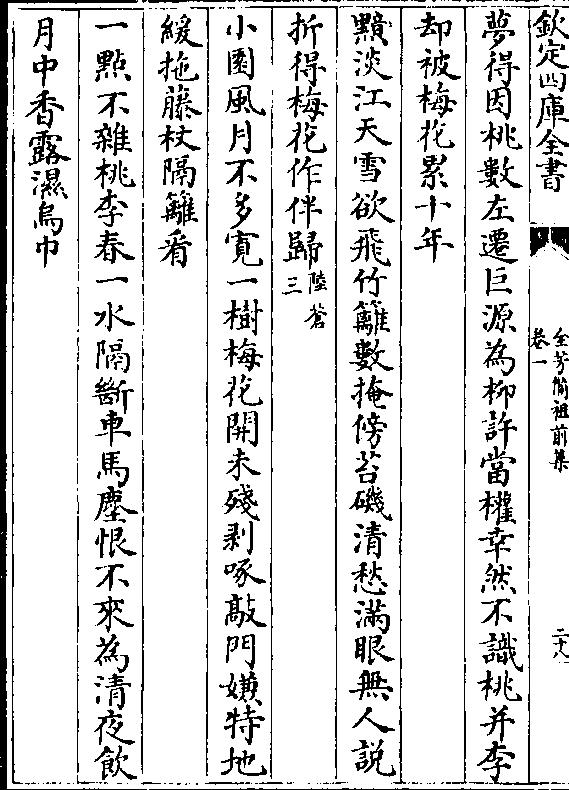 欽定四庫全書
全芳備祖前集
卷一
二十八
夢得因桃數左遷巨源為柳許當權幸然不識桃并李
却被梅花累十年
黯淡江天雪欲飛竹籬數掩傍苔磯清愁滿眼無人説
折得梅花作伴歸陸蒼
三
小園風月不多寛一樹梅花開未殘剥啄敲門嫌特地
緩拖藤杖隔籬看
一點不雜桃李春一水隔斷車馬塵恨不來為清夜飲
月中香露濕烏巾